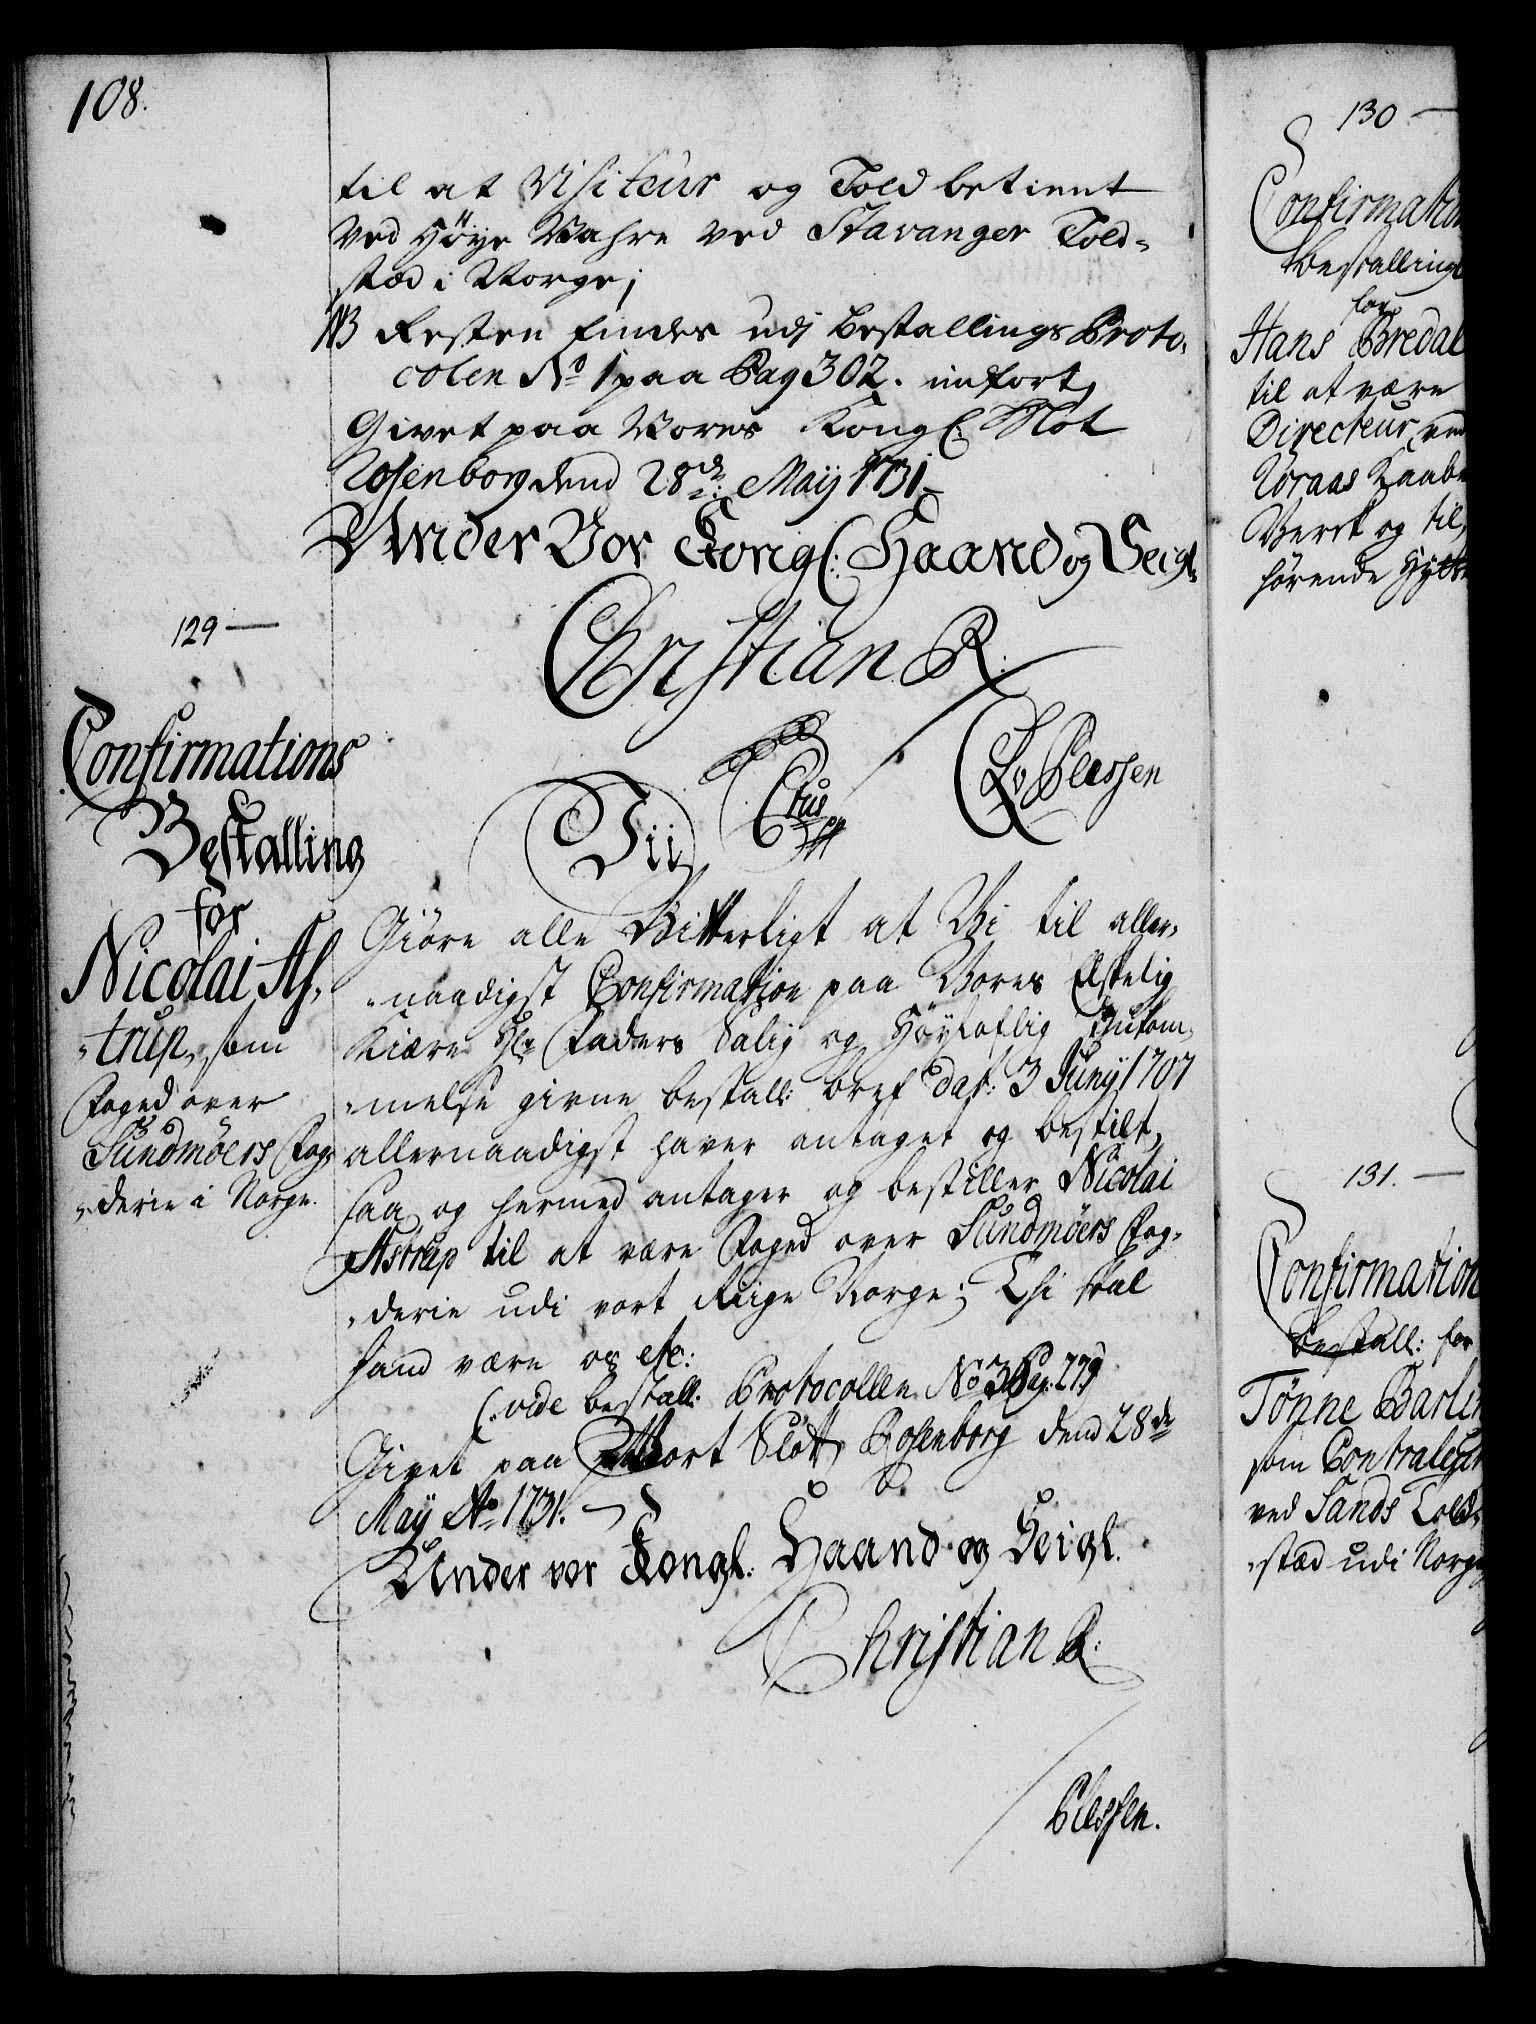 108.
til at Visiteur og Told betient
ved Höye Wahre ved Stavanger Told-
stæd i Norge;
NB Resten findes udj Bestallings Proto-
colen No 1 paa Pag 302. indfort,
Givet paa Vores Kongl: Slot
Rosenborg dend 28de: Maij 1731
Under Vor Kongl: Haand og Seigl.
Christian R.
CAv Plessen
129
Confirmations
Bestalling
for
Nicolai As-
trup, som
Foged over
Sundmöers Fog-
derie i Norge.
Ctus
Vii
Giöre alle Vitterligt at Vi til aller-
naadigst Confirmation paa Vores Elskelig
Kiære Hr Faders Salig og Höyloflig Ihukom-
melse givne bestall: bref dat: 3 Junij 1707
allernaadigst haver antaget og bestilt,
saa og hermed antager og bestiller Nicolai
Astrup til at være Foged over Sundmöers Fog-
derie udi vort Riige Norge; Thi skal
hand være os etc:
(: vide bestall: Protocollen No 3 Pag: 279
Givet paa Vort Slott Rosenborg dend 28de
Maij Ao 1731.
Under vor Kongl: Haand og Seigl.
Christian R:
Plessen.
130
Confirmation
bestalling
for
Hans Bredal
til at være
Directeur ved
Röraas Kaaber
Verck og til,
hörende Hytte
131.
Confirmation
bestall: for
Tönne Bartlin
som Contralleur
ved Sands Told-
stæd udi Norge